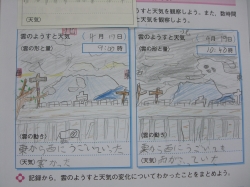 を観察しよう。また、数時間
と天気を観察しよう。
(天気)
雲のようすと天気
(雲の形と量)
9:00 時
雲のようすと天気
(雲の形と量)
10:40 時
(雲の動き)
東から西にうごいていた
(天気)
(雲の動き)
東から西にうごいていた
(天気)
記録から、雲のようすと天気の変化についてわかったことをまとめよう。